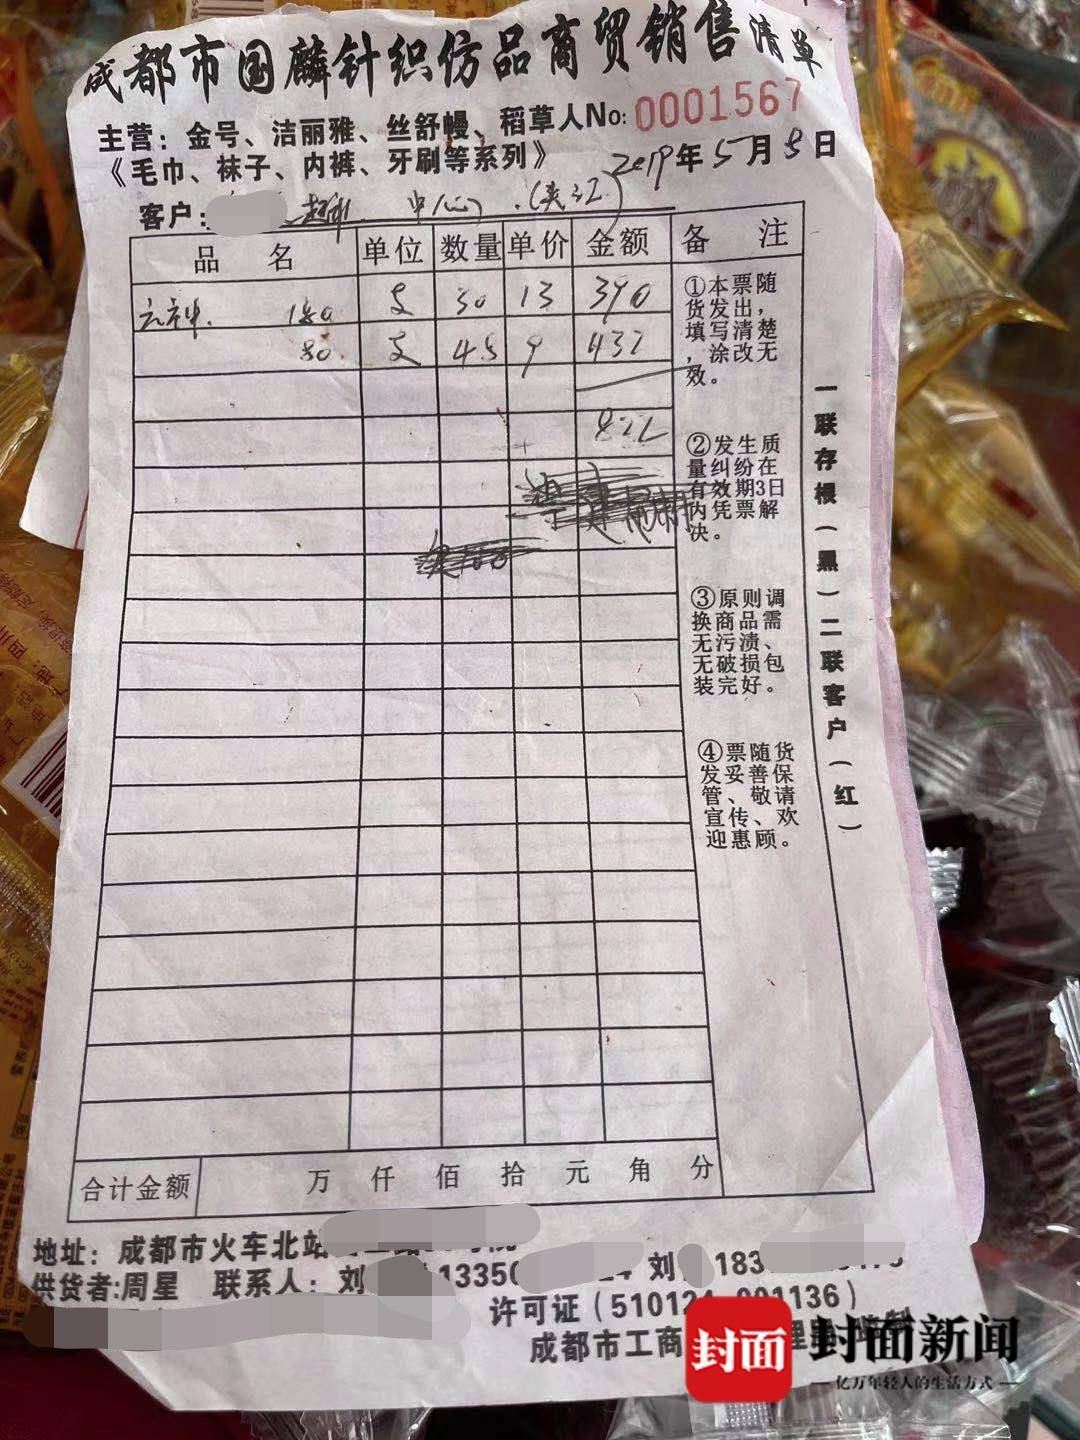 成都市国麟针织仿品商贸销售清单
主营：金号、洁丽雅、丝舒幔、稻草人No: 0001567
《毛巾、袜子、内裤、牙刷等系列》 2019年5月8日
客户： 中心（夹江）
品 名 单位 数量 单价 金额 备 注
六神 180 支 30 13 390
80 支 48 9 432
822
①本票随
货发出，
填写清楚
，涂改无
效。
②发生质
量纠纷在
有效期3日
内凭票解
决。
③原则调
换商品需
无污渍、
无破损包
装完好。
④票随货
发妥善保
管、敬请
宣传、欢
迎惠顾。
一联存根（黑）二联客户（红）
合计金额 万 仟 佰 拾 元 角 分
地址：成都市火车北站
供货者：周星 联系人：刘 13350 24 刘 183
许可证（510124 001136）
成都市工商 监制
封面 封面新闻
亿万年轻人的生活方式